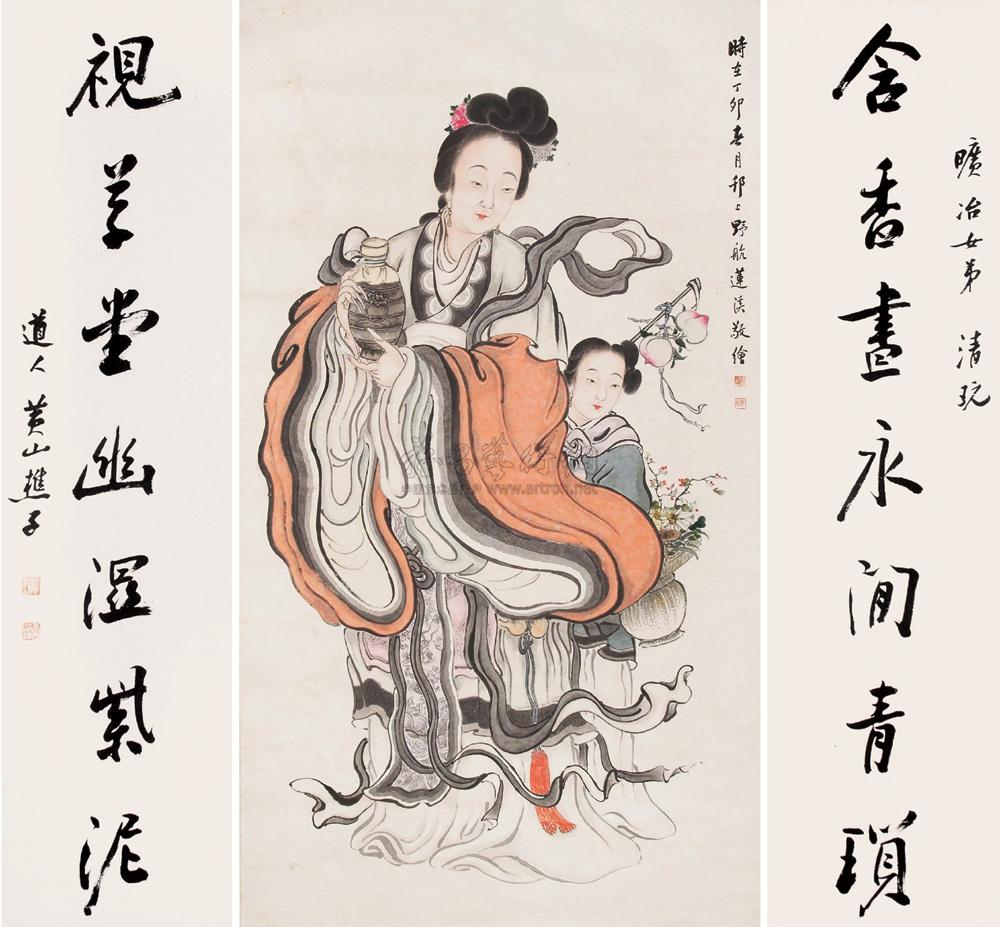 曠冶女弟 清玩
含香晝永閒青瑣
時在丁卯春月邗上野航蓮溪敬繪
視草堂幽濕紫泥
道人 黃山樵子
www.artron.net